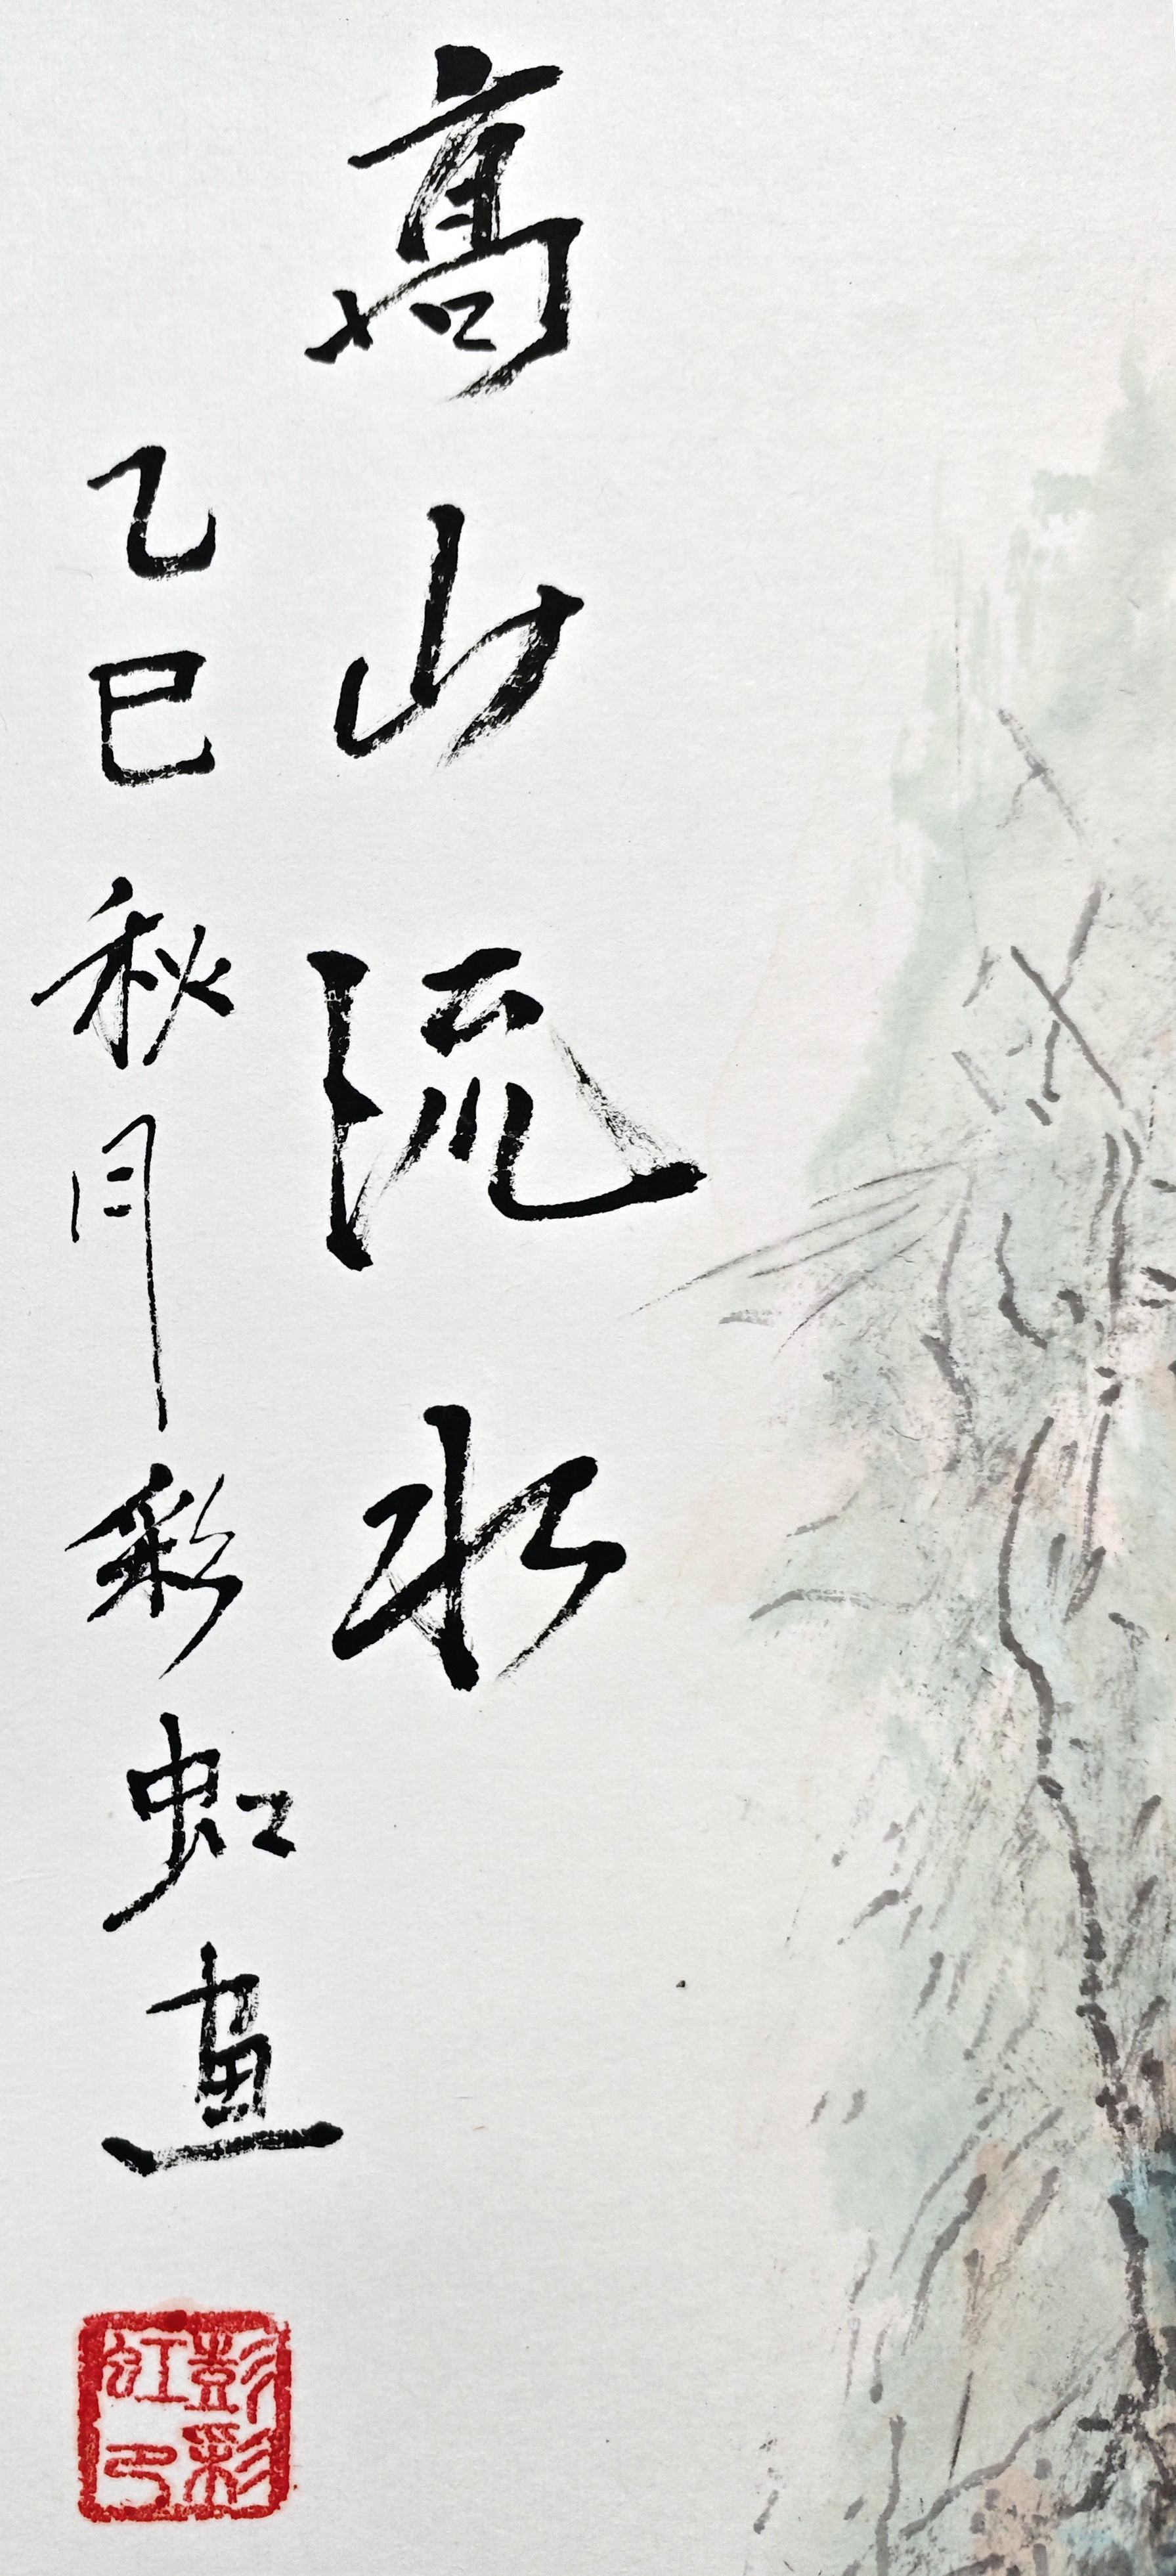 高山流水
乙巳秋月彩虹画
彭彩虹印